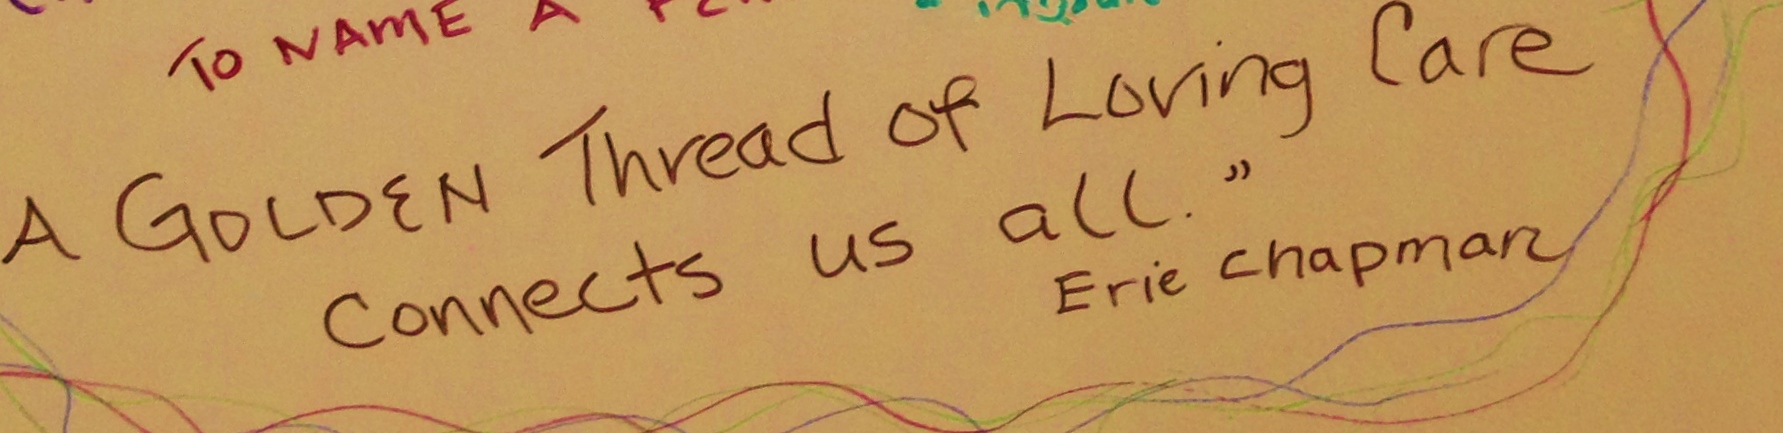 TO NAME A
A GOLDEN Thread of Loving Care
Connects us all."
Erie Chapman